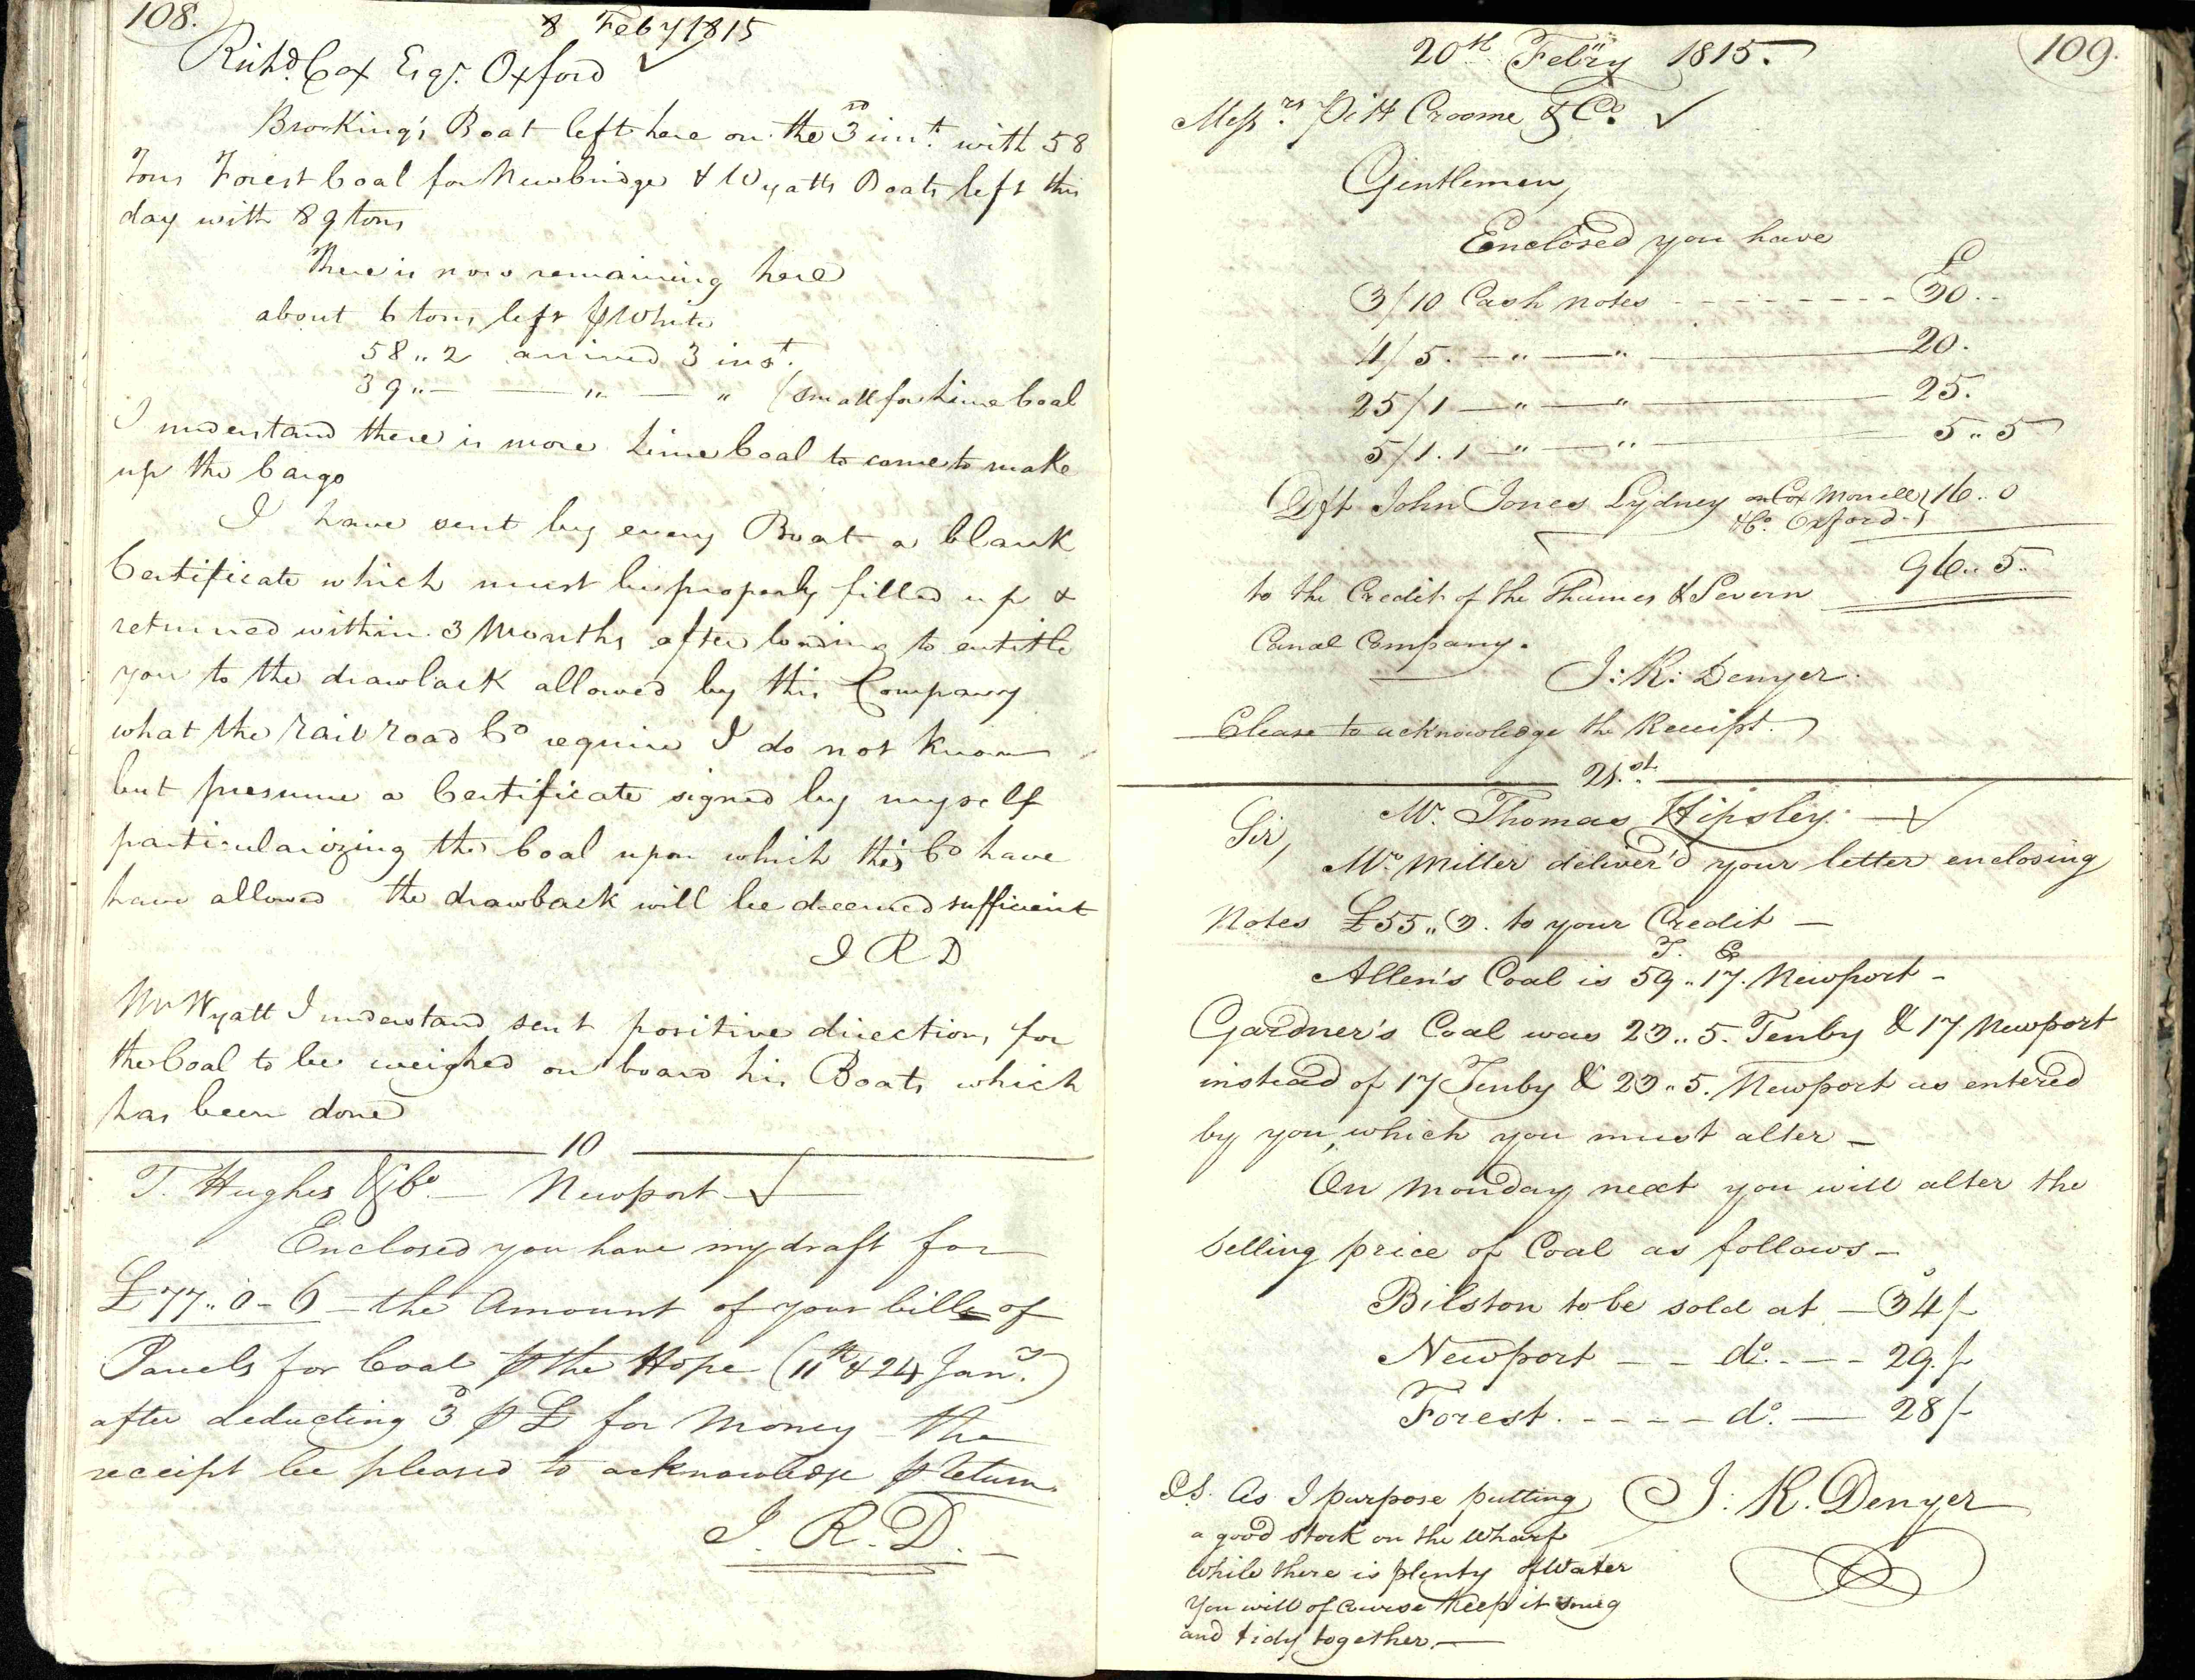 108.
8 Feby 1815
Richd. Cox Esqr. Oxford ✓
Brooking's Boat left here on the 3rd inst. with 58
Tons Forest Coal for Newbridge & Wyatts Boats left this
day with 89 tons
There is now remaining here
about 6 tons left ⅌ White
58 „ 2 arrived 3 inst.
39 „ — — „ — „ (small for Lime Coal
I understand there is more Lime Coal to come to make
up the Cargo
I have sent by every Boat a blank
Certificate which must be properly filled up &
returned within 3 Months after loading to entitle
you to the drawback allowed by this Company
what the rail road Co require I do not know
but presume a Certificate signed by myself
particularizing the Coal upon which this Co have
have allowed the drawback will be deemed sufficient
I R D
Mr Wyatt I understand sent positive directions for
the Coal to be weighed on board his Boats which
has been done
10
T. Hughes & Co. — Newport ✓
Enclosed you have my draft for
£77 „ 0 - 6 — the Amount of your bills of
Parcels for Coal ⅌ the Hope (11th & 24 Jany.)
after deducting 3d ⅌ £ for Money — the
receipt be pleased to acknowledge ⅌ return.
J. R. D. —
109.
20th Febry 1815.
Messrs. Pitt Croome & Co. ✓
Gentlemen,
Enclosed you have
£
3/10 Cash notes - - - - - - - - 30 . .
4/5. — „ — „ — 20.
25/1 — „ — „ — 25.
5/1.1 — „ — „ — 5 „ 5
Dft John Jones Lydney on Cox Morrell } 16 „ 0
& Co. Oxford. }
96 „ 5 „
to the Credit of the Thames & Severn
Canal Company.
J: R: Denyer.
Please to acknowledge the Receipt.
21.st
Mr. Thomas Hipsley. — ✓
Sir,
Mr. Miller deliver'd your letter enclosing
Notes £55 „ 3. to your Credit —
T. C
Allen's Coal is 59 „ 17. Newport —
Gardner's Coal was 23 „ 5. Tenby & 17 Newport
instead of 17 Tenby & 23 „ 5. Newport as entered
by you, which you must alter —
On Monday next you will alter the
Selling price of Coal as follows —
s
Bilston to be sold at — 34/-
Newport — — do. - — - 29./-
Forest. - - - - do. — 28/-
J: R. Denyer
P.S. As I purpose putting
a good stock on the Wharf
while there is plenty of Water
You will of course keep it snug
and tidy together. —